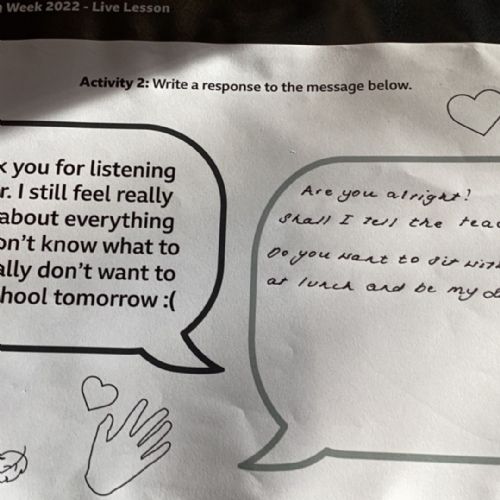 Week 2022 - Live Lesson
Activity 2: Write a response to the message below.
you for listening
I still feel really
about everything
know what to
don't want to
tomorrow :(
Are you alright?
Shall I tell the
Do you want to sit
at lunch and be my